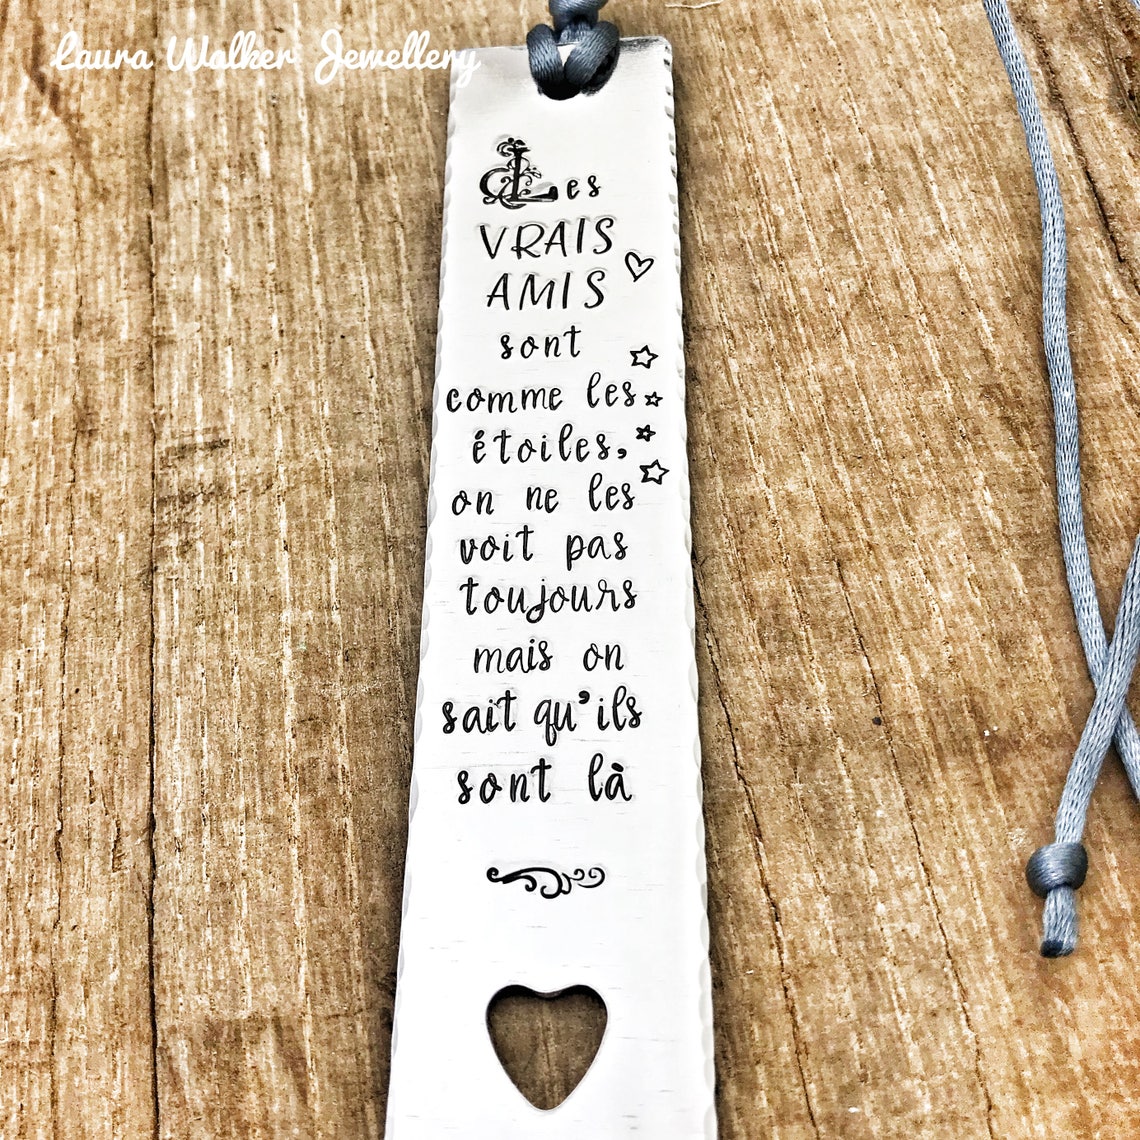 Laura Walker Jewellery
Les
VRAIS
AMIS
sont
comme les
étoiles,
on ne les
voit pas
toujours
mais on
sait qu'ils
sont là